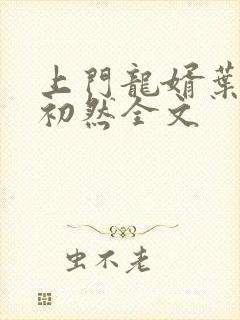 上門龍婿葉
初然全文
虫不老